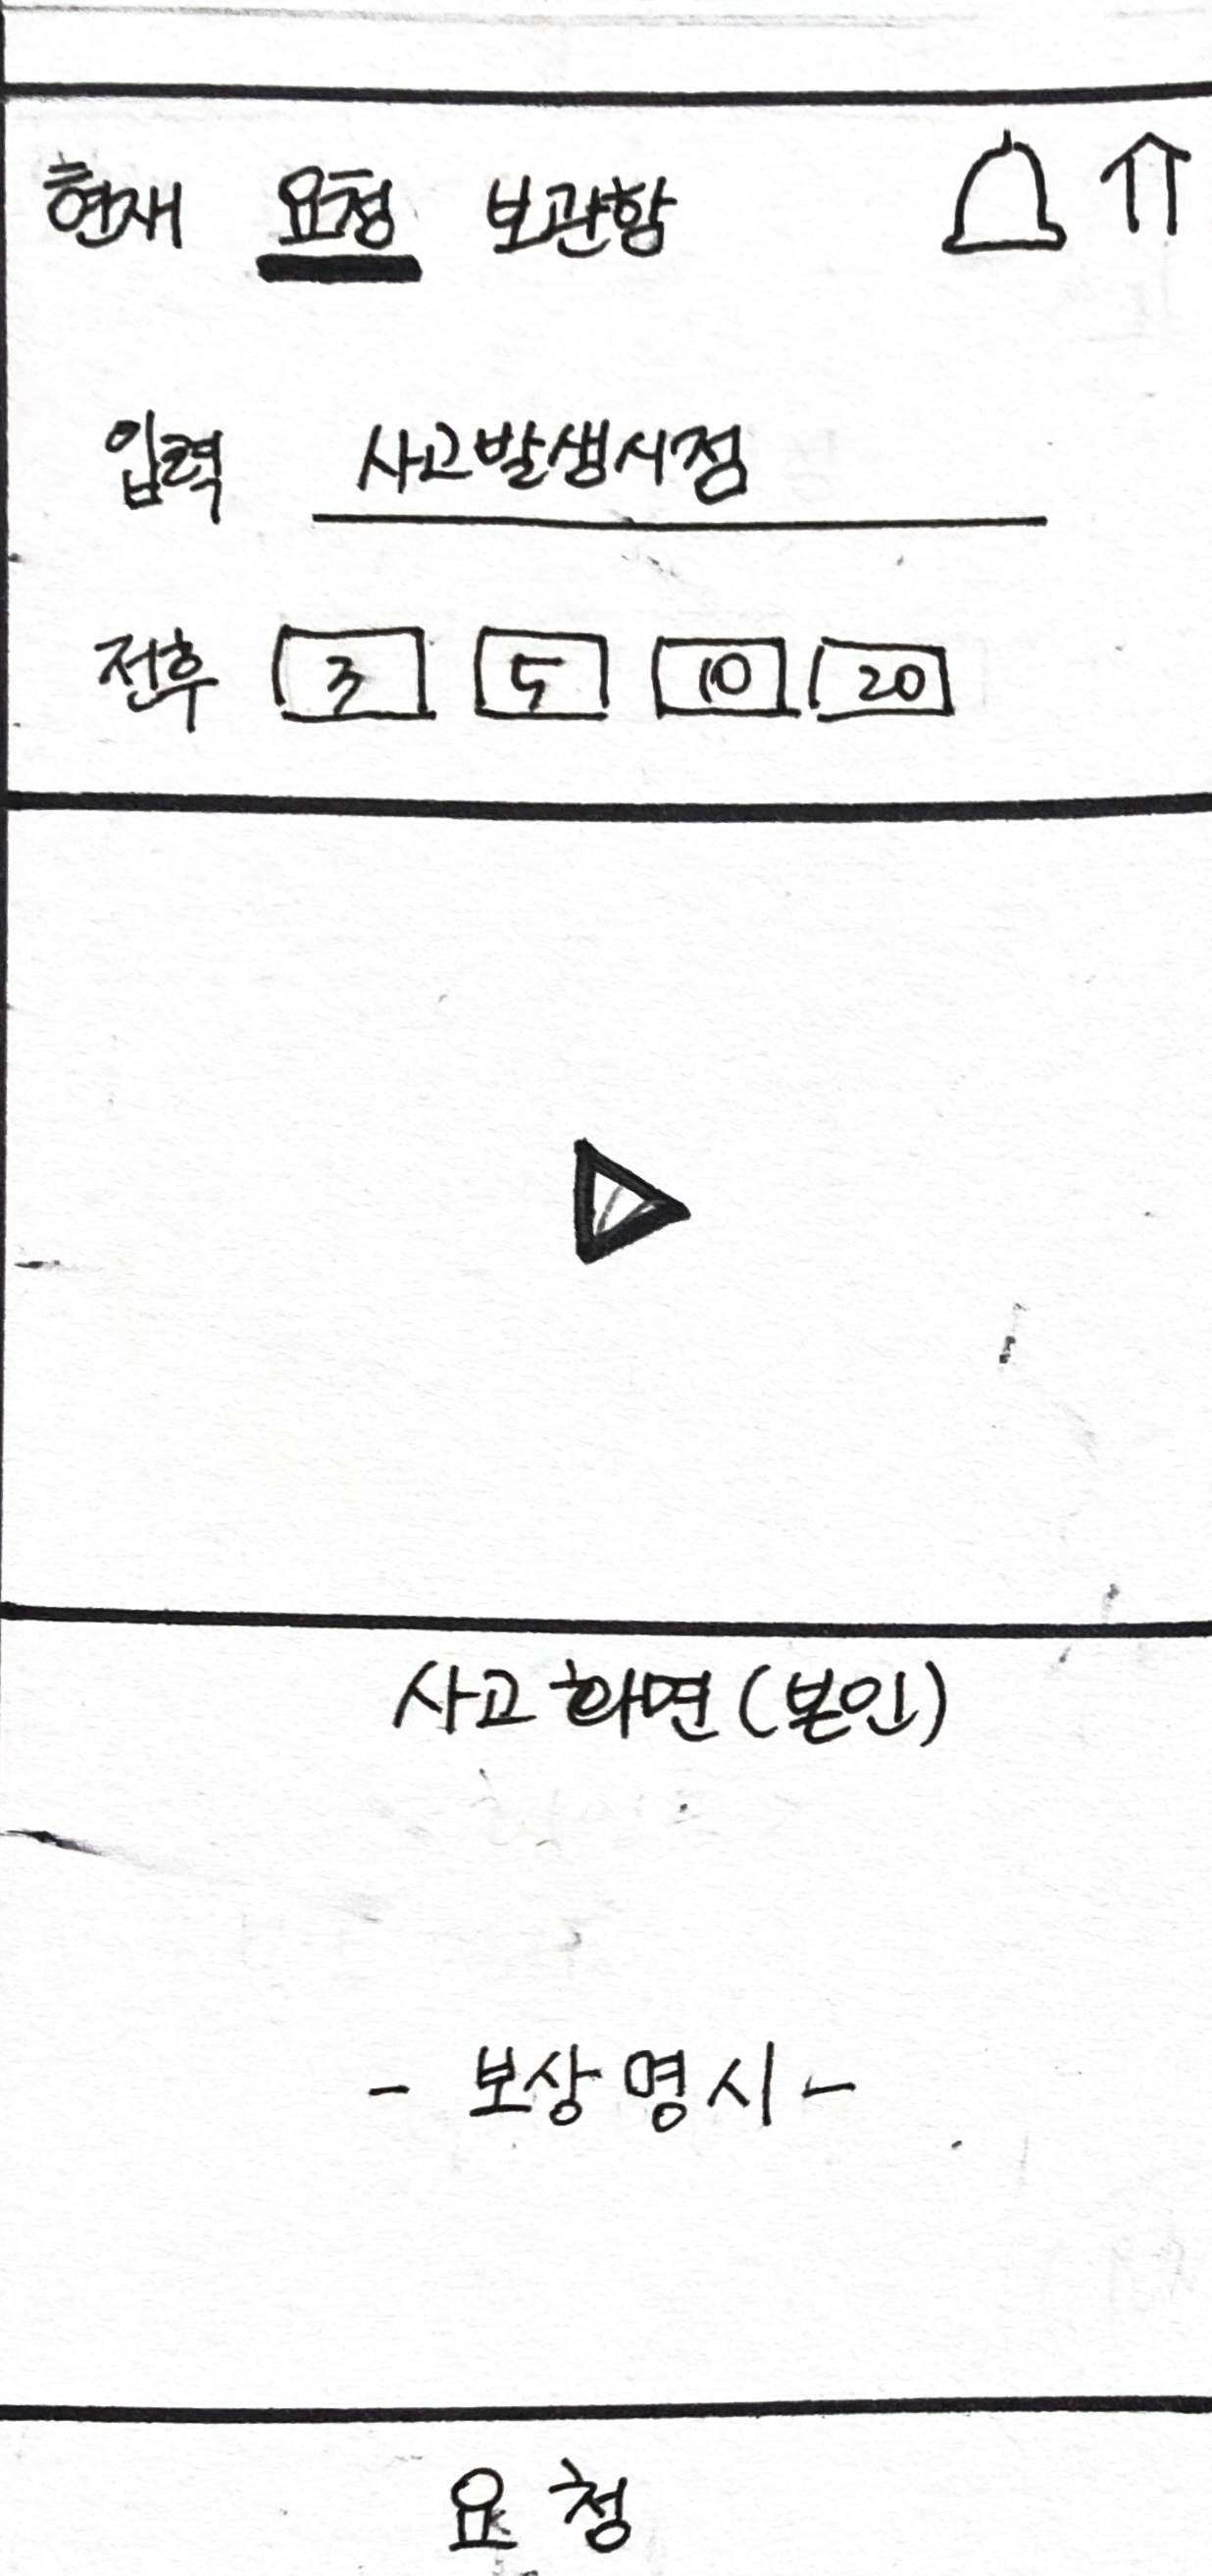 현재 요청 보관함
입력 사고발생시점
전후 3 5 10 20
사고 화면 (본인)
- 보상 명시 -
요청